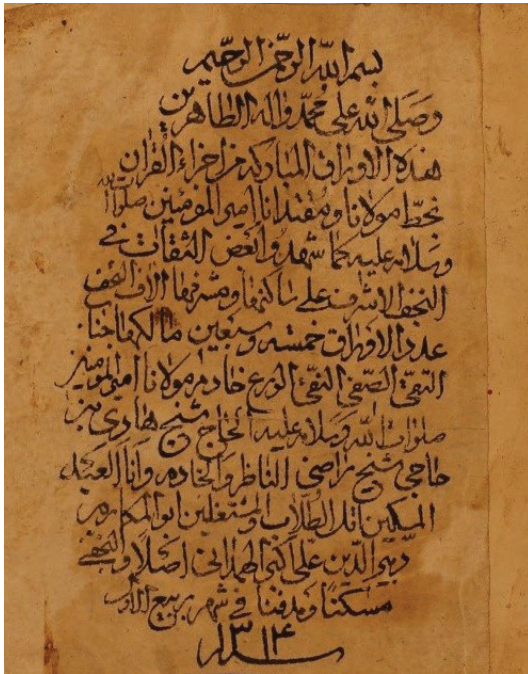 بسم الله الرحمن الرحيم
وصلى الله على محمد واله الطاهرين
هذه الاوراق المباركة من اجزاء القران
بخط مولانا ومقتدانا امير المؤمنين صلوات الله
وسلامه عليه كما شهدوا بعض الثقات في
النجف الاشرف على ساكنها ومشرفها الاف التحف
عدد الاوراق خمسة وسبعين مالكها جناب
التقي الصفي النقي الورع خادم مولانا امير المؤمنين
صلوات الله وسلامه عليه الحاج شيخ هادي بن
حاجي شيخ راضي الناظر والخادم وانا العبد
المسكين اقل الطلاب والمشتغلين ابو المكارم
الدين علي اكبر الهمداني اصلا والنجفي
مسكنا ومدفنا في شهر ربيع الاول
١٣١٤